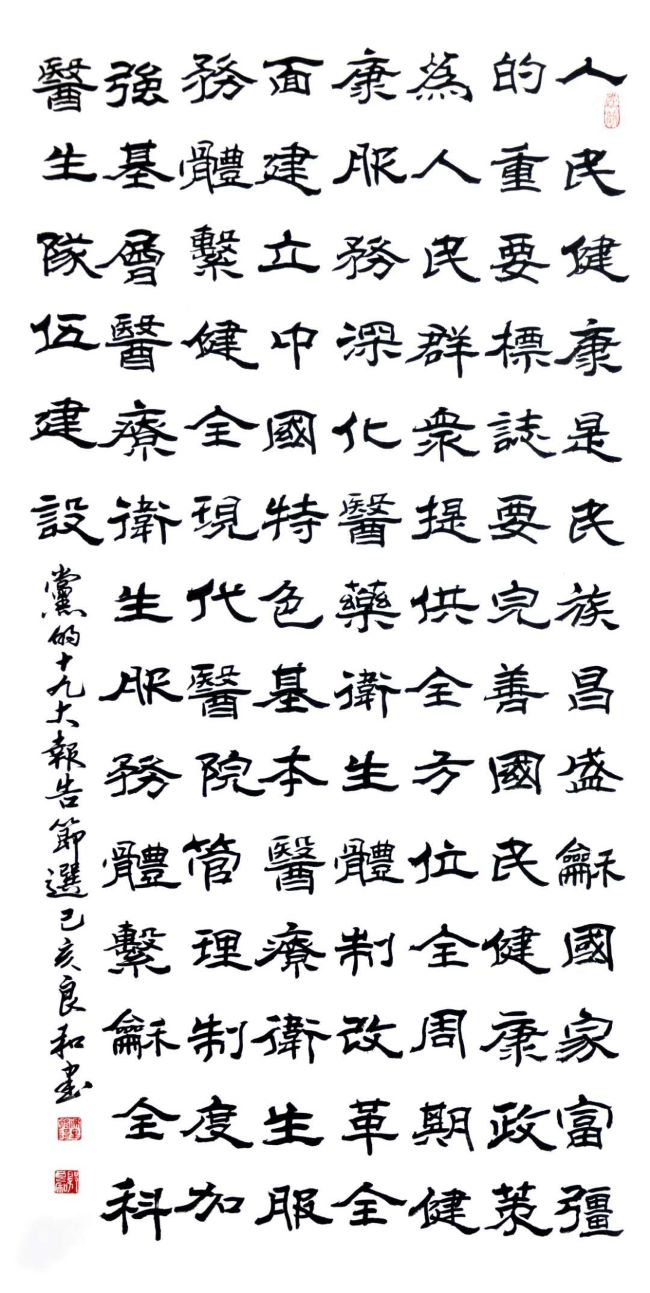 人民健康是民族昌盛龢國家富彊
的重要標誌要完善國民健康政策
為人民群衆提供全方位全周期健
康服務深化醫藥衛生體制改革全
面建立中國特色基本醫療衛生服
務體繫健全現代醫院管理制度加
強基層醫療衛生服務體繫龢全科
醫生隊伍建設
黨的十九大報告節選己亥良和書